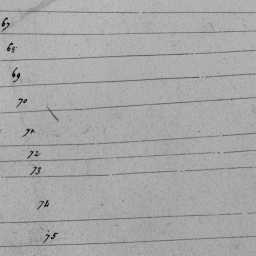 67
68
69
70
71
72
73
74
75